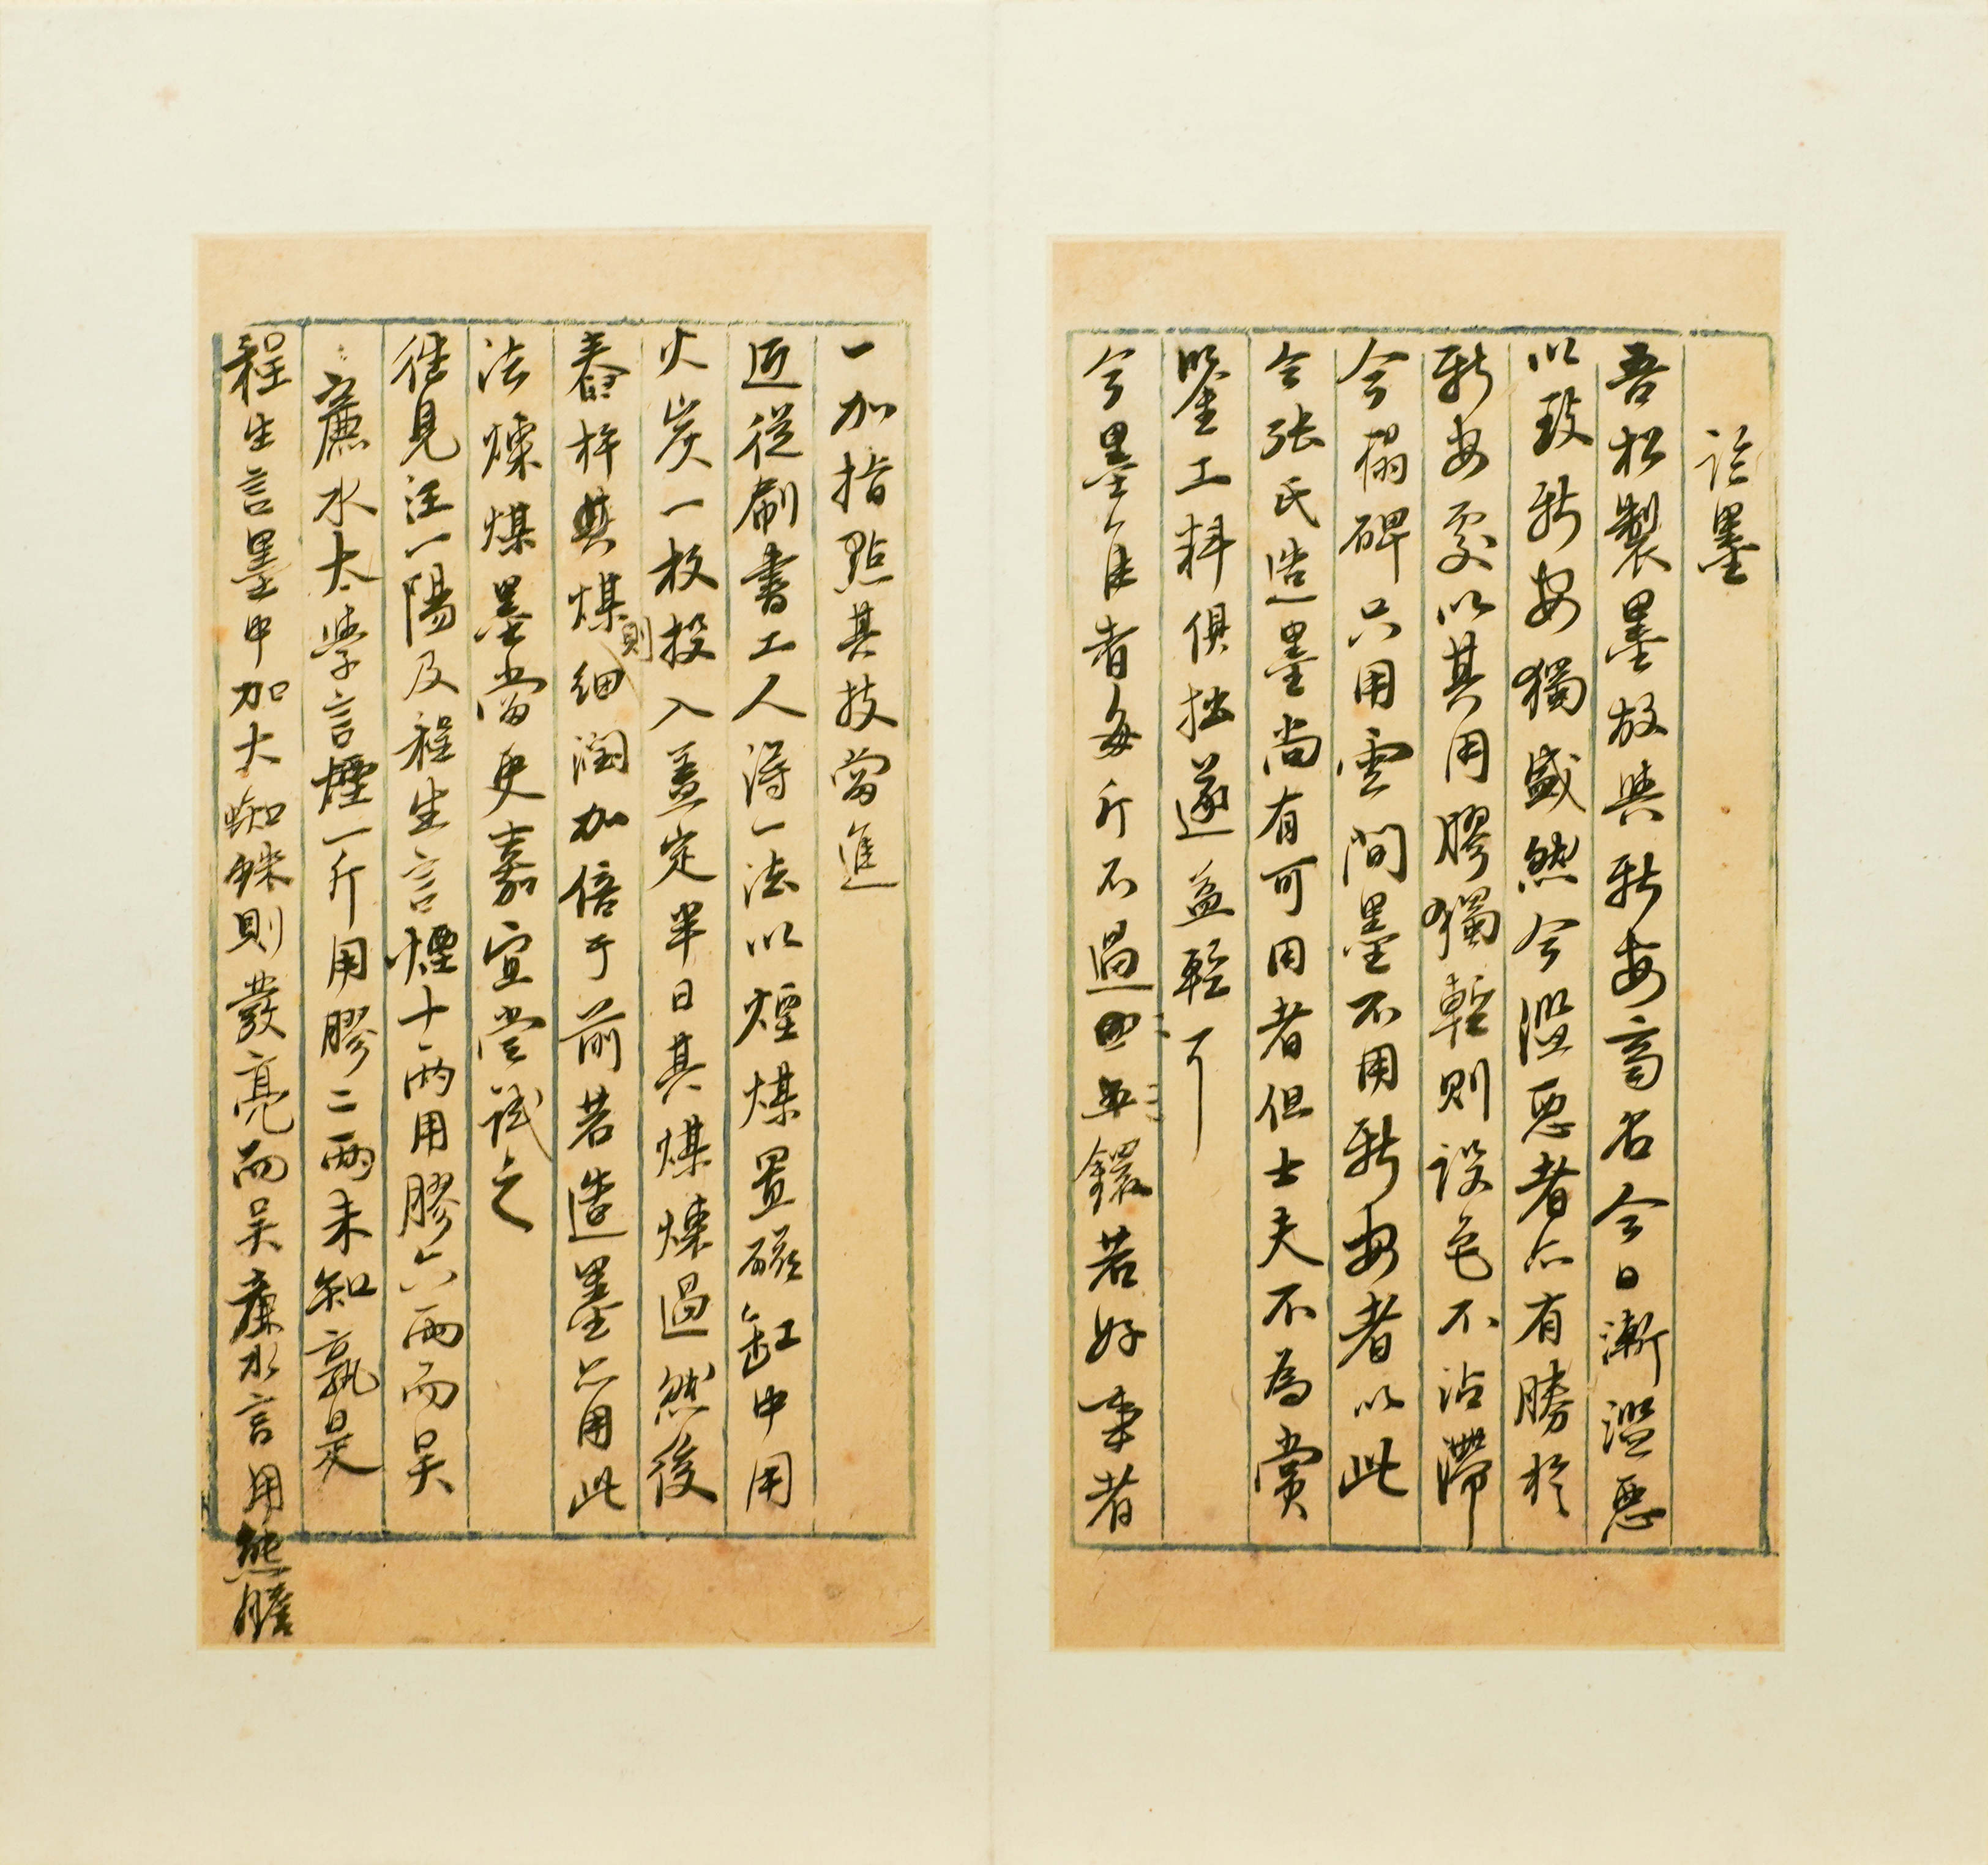 論墨
吾松製墨故與新安齊名今日漸濫惡
以致新安獨盛然今濫惡者亦有勝於
新安處以其用膠獨輕則設色不沾滯
今搨碑只用雲間墨不用新安者以此
今張氏造墨尚有可用者但士夫不為賞
鑒工料俱拙遂益輕耳
今墨佳者每斤不過四五鐶若好事者
一加指點其技當進
近從刷書工人得一法以煙煤置磁缸中用
火炭一枚投入蓋定半日其煤煉過然後
舂杵其煤則細潤加倍于前若造墨亦用此
法煉煤墨當更嘉宜嘗試之
往見汪一陽及程生言煙十兩用膠六兩而吳
廉水太學言煙一斤用膠二兩未知孰是
程生言墨中加大蜘蛛則發亮而吳廉水言用熊膽